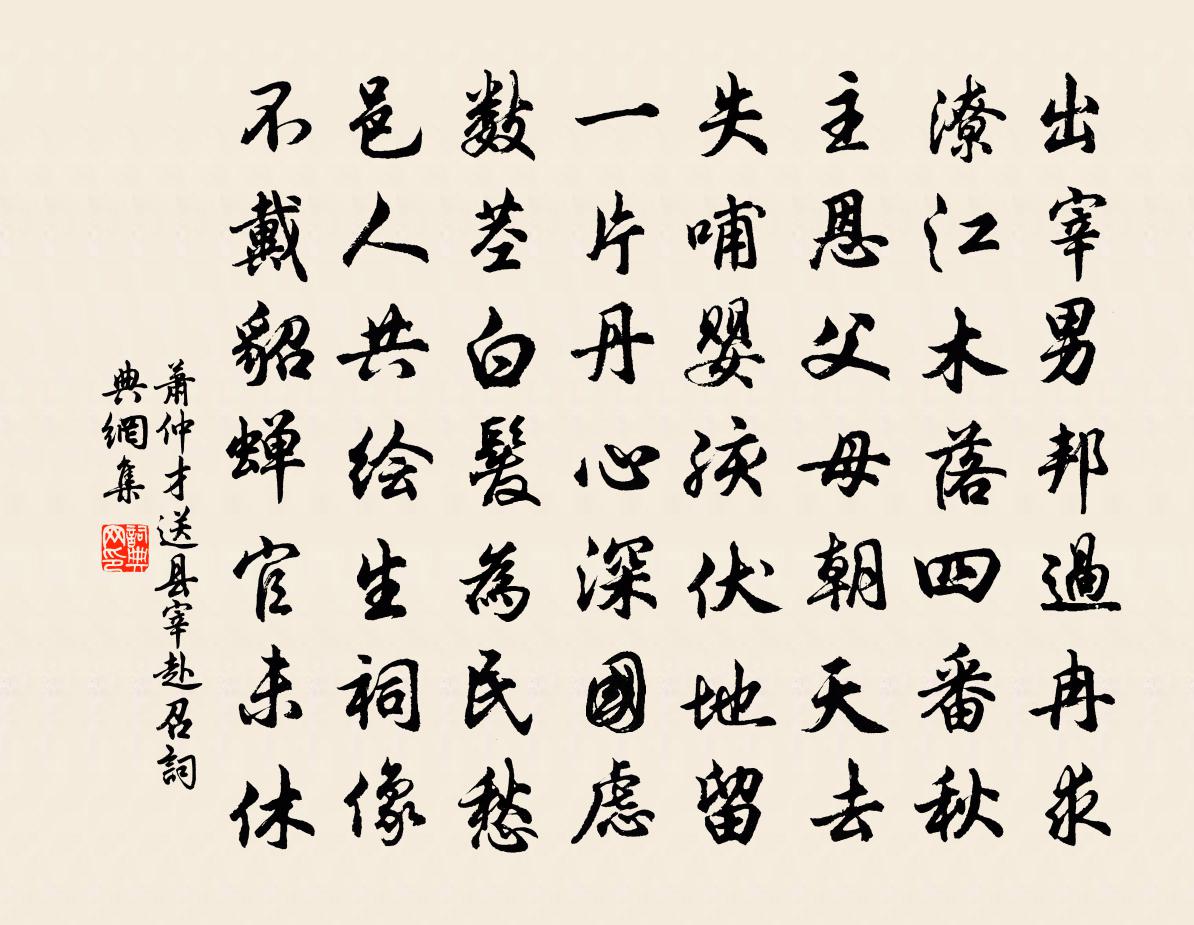 出宰男邦過冉求
潦江木落四番秋
主恩父母朝天去
失哺嬰孩伏地留
一片丹心深國慮
數莖白髮為民愁
邑人共绘生祠像
不戴貂蝉官未休
萧仲才送县宰赴召詞
典網集
詞典网印